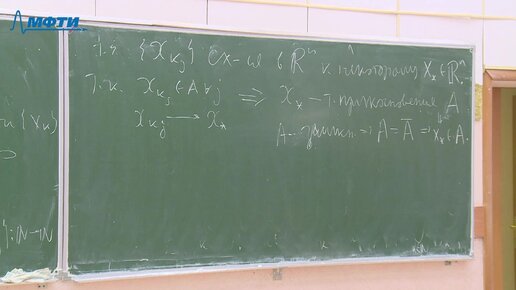 МФТИ
Т.е. {x_{k_j}} сх-ся в ℝⁿ к некоторому x_* ∈ ℝⁿ.
Т.к. x_{k_j} ∈ A ∀j ⇒ x_* – т. прикосновения A
x_{k_j} → x_*
A – замкн. ⇒ A = Ā ⇒ x_* ∈ A.
{x_k}